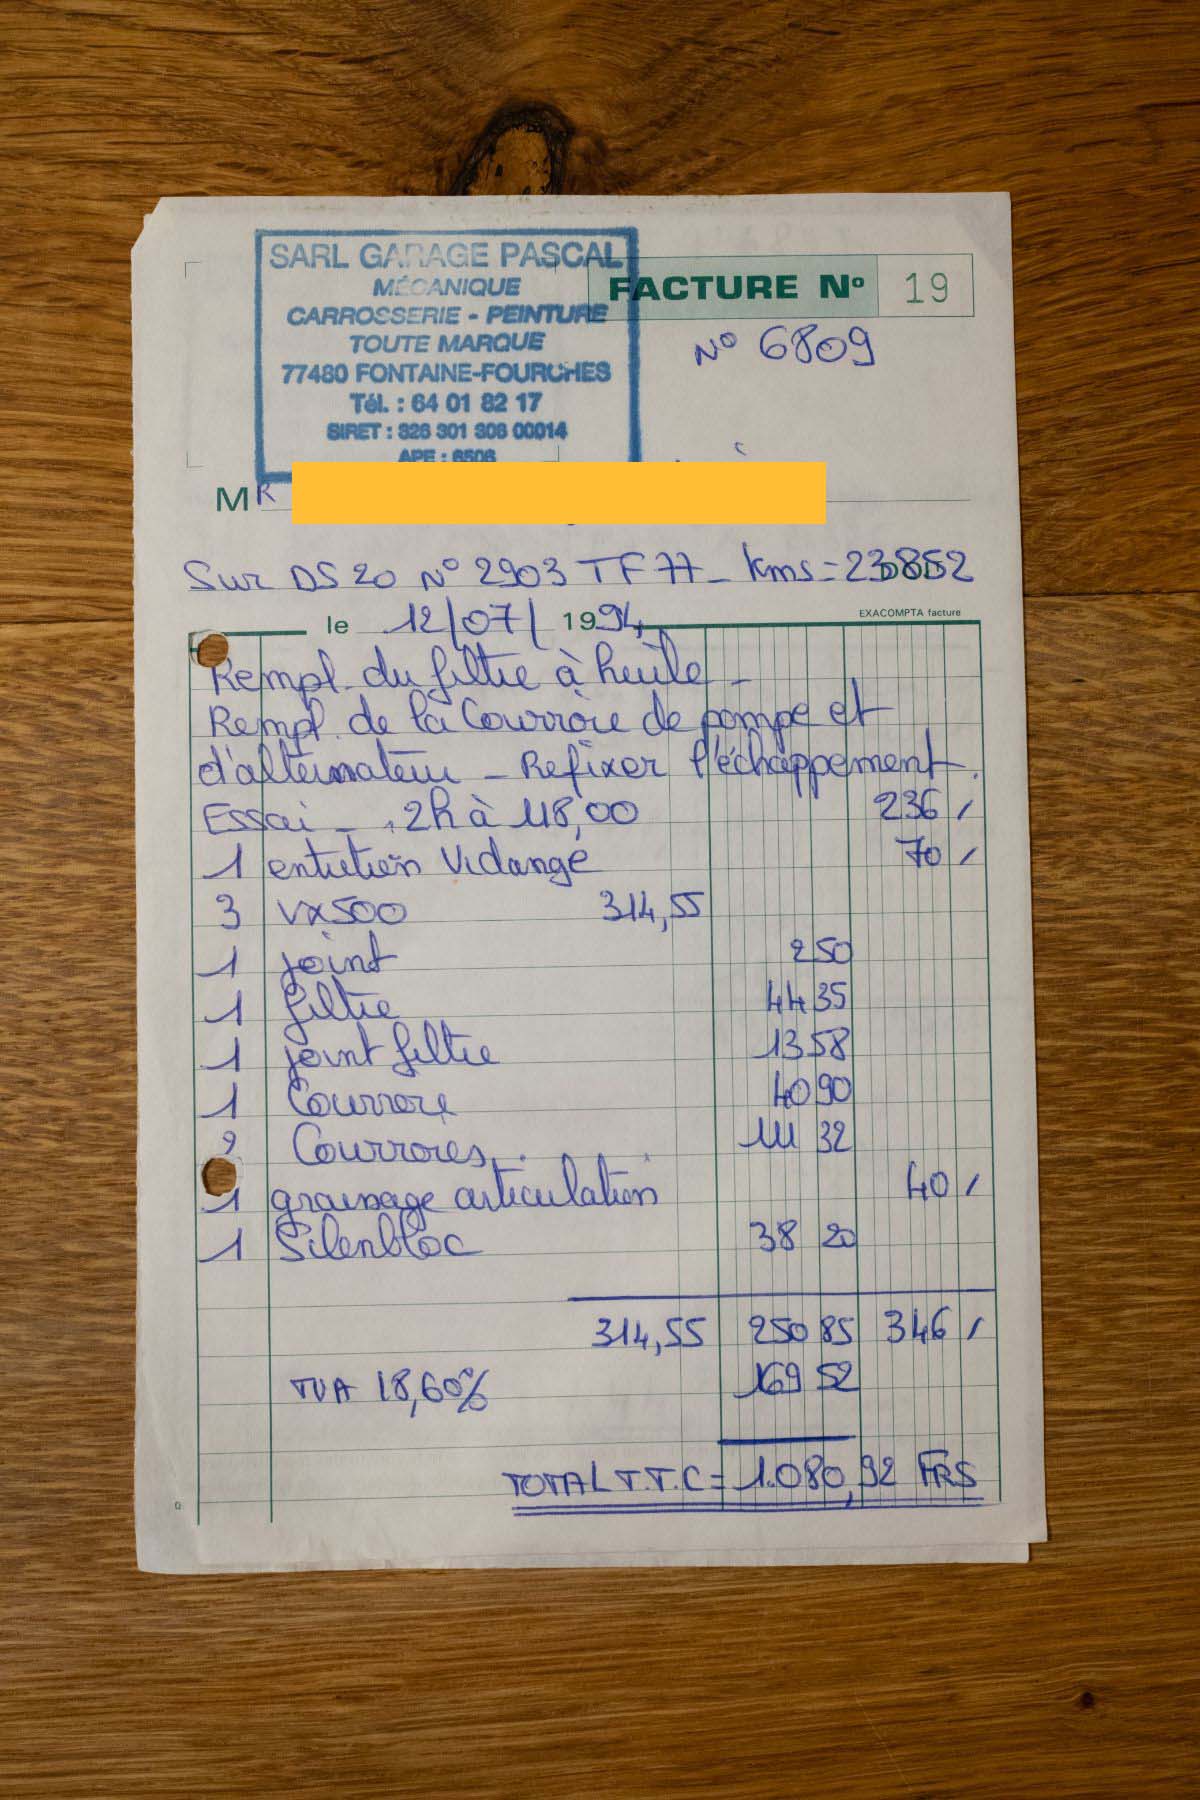 SARL GARAGE PASCAL
MÉCANIQUE
CARROSSERIE - PEINTURE
TOUTE MARQUE
77480 FONTAINE-FOURCHES
Tél. : 64 01 82 17
SIRET : 326 301 308 00014
APE : 6506
FACTURE No 19
No 6809
MR
Sur DS 20 No 2903 TF 77 - kms = 230852
EXACOMPTA facture
le 12/07/ 1994
Rempl. du filtre à huile -
Rempl. de la Courroie de pompe et
d'alternateur - Refixer l'échappement.
Essai - 2h à 118,00 236 /
1 entretien Vidange 70 /
3 VX500 314,55
1 joint 2 50
1 filtre 44 35
1 joint filtre 13 58
1 Courroie 40 90
2 Courroies. 111 32
1 graissage articulation 40 /
1 Silenbloc 38 20
314,55 250 85 346 /
TVA 18,60% 169 52
TOTAL T.T.C = 1.080,92 FRS